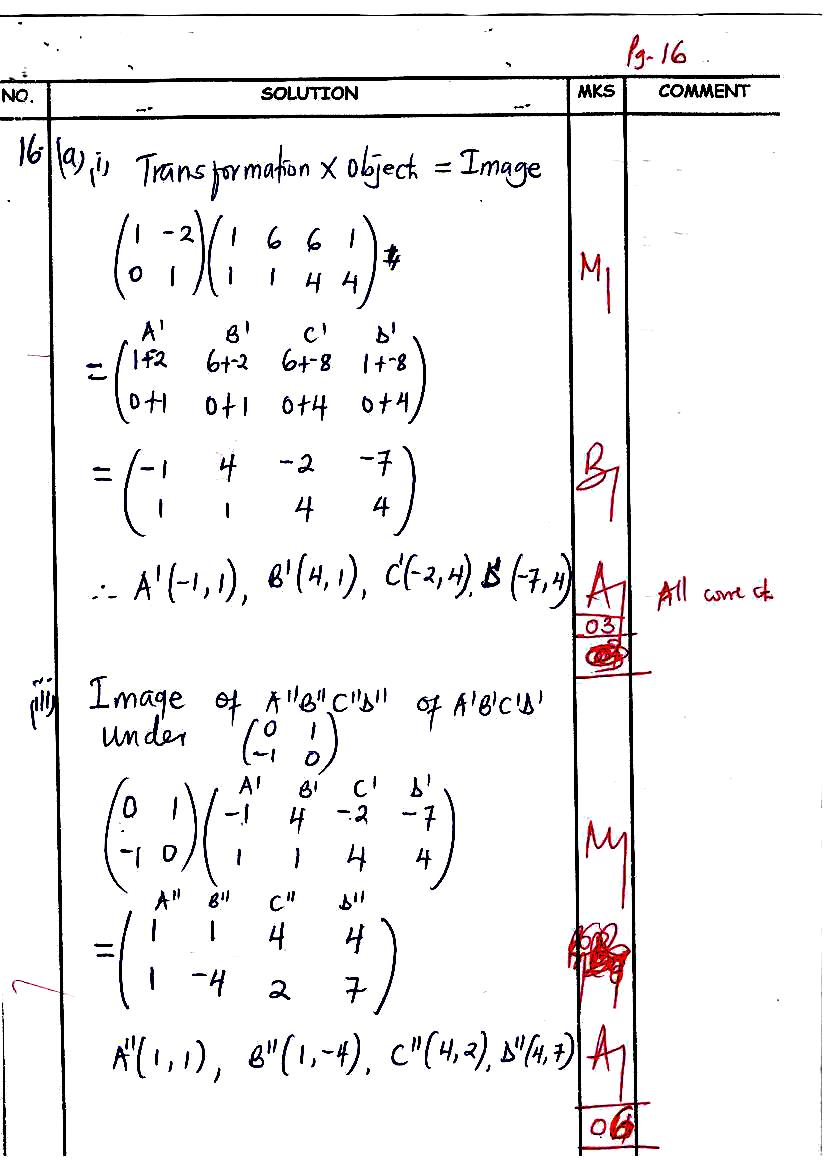 Pg-16
NO. SOLUTION MKS COMMENT
16 (a) (i) Transformation x Object = Image
(1 -2) (1 6 6 1)
(0 1) (1 1 4 4)
M1
A' B' C' D'
= (1+-2 6+-2 6+-8 1+-8)
(0+1 0+1 0+4 0+4)
= (-1 4 -2 -7)
(1 1 4 4)
B1
∴ A'(-1, 1), B'(4, 1), C'(-2, 4), D'(-7, 4) A1 All correct
03
(ii) Image of A''B''C''D'' of A'B'C'D'
under (0 1)
(-1 0)
A' B' C' D'
(0 1) (-1 4 -2 -7)
(-1 0) (1 1 4 4)
M1
A'' B'' C'' D''
= (1 1 4 4)
(1 -4 2 7)
A''(1, 1), B''(1, -4), C''(4, 2), D''(4, 7) A1
06